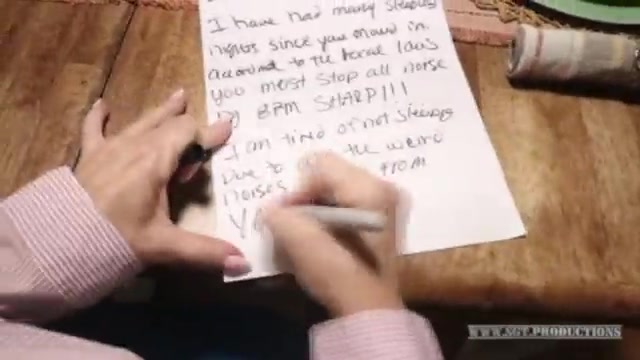 I have had many sleepless
nights since you moved in.
According to the local laws
you must stop all noise
by 8PM SHARP!!!
I am tired of not sleeping
Due to the weird
noises from
WWW.SGT.PRODUCTIONS